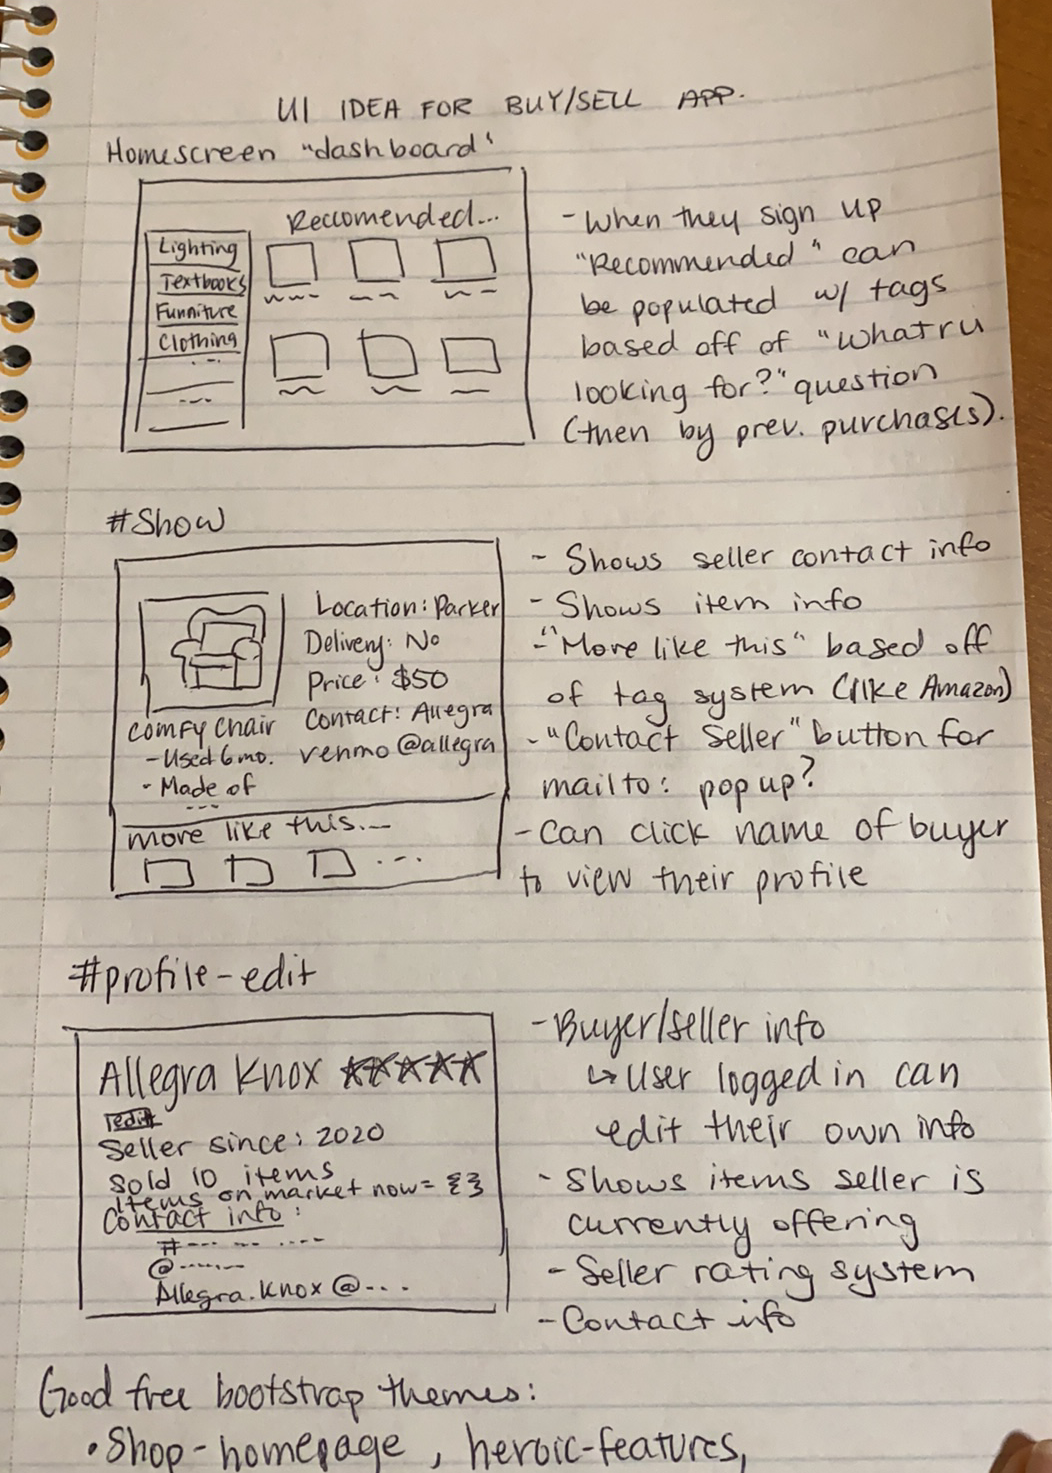 UI IDEA FOR BUY/SELL APP.
Homescreen "dashboard"
Reccomended...
Lighting
Textbooks
Funniture
Clothing
- When they sign up
"Recommended" can
be populated w/ tags
based off of "What r u
looking for?" question
(then by prev. purchases).
#Show
Location: Parker
Delivery: No
Price: $50
Contact: Allegra
venmo @allegra
comfy chair
- Used 6 mo.
- Made of
...
more like this...
...
- Shows seller contact info
- Shows item info
- "More like this" based off
of tag system (like Amazon)
- "Contact Seller" button for
mailto: pop up?
- Can click name of buyer
to view their profile
#profile-edit
Allegra Knox ★★★★★
edit
Seller since: 2020
Sold 10 items
Items on market now = {}
Contact info:
#--- -- ----
@------
Allegra.Knox@---
- Buyer/seller info
↳ User logged in can
edit their own info
- Shows items seller is
currently offering
- Seller rating system
- Contact info
Good free bootstrap themes:
• Shop-homepage, heroic-features,